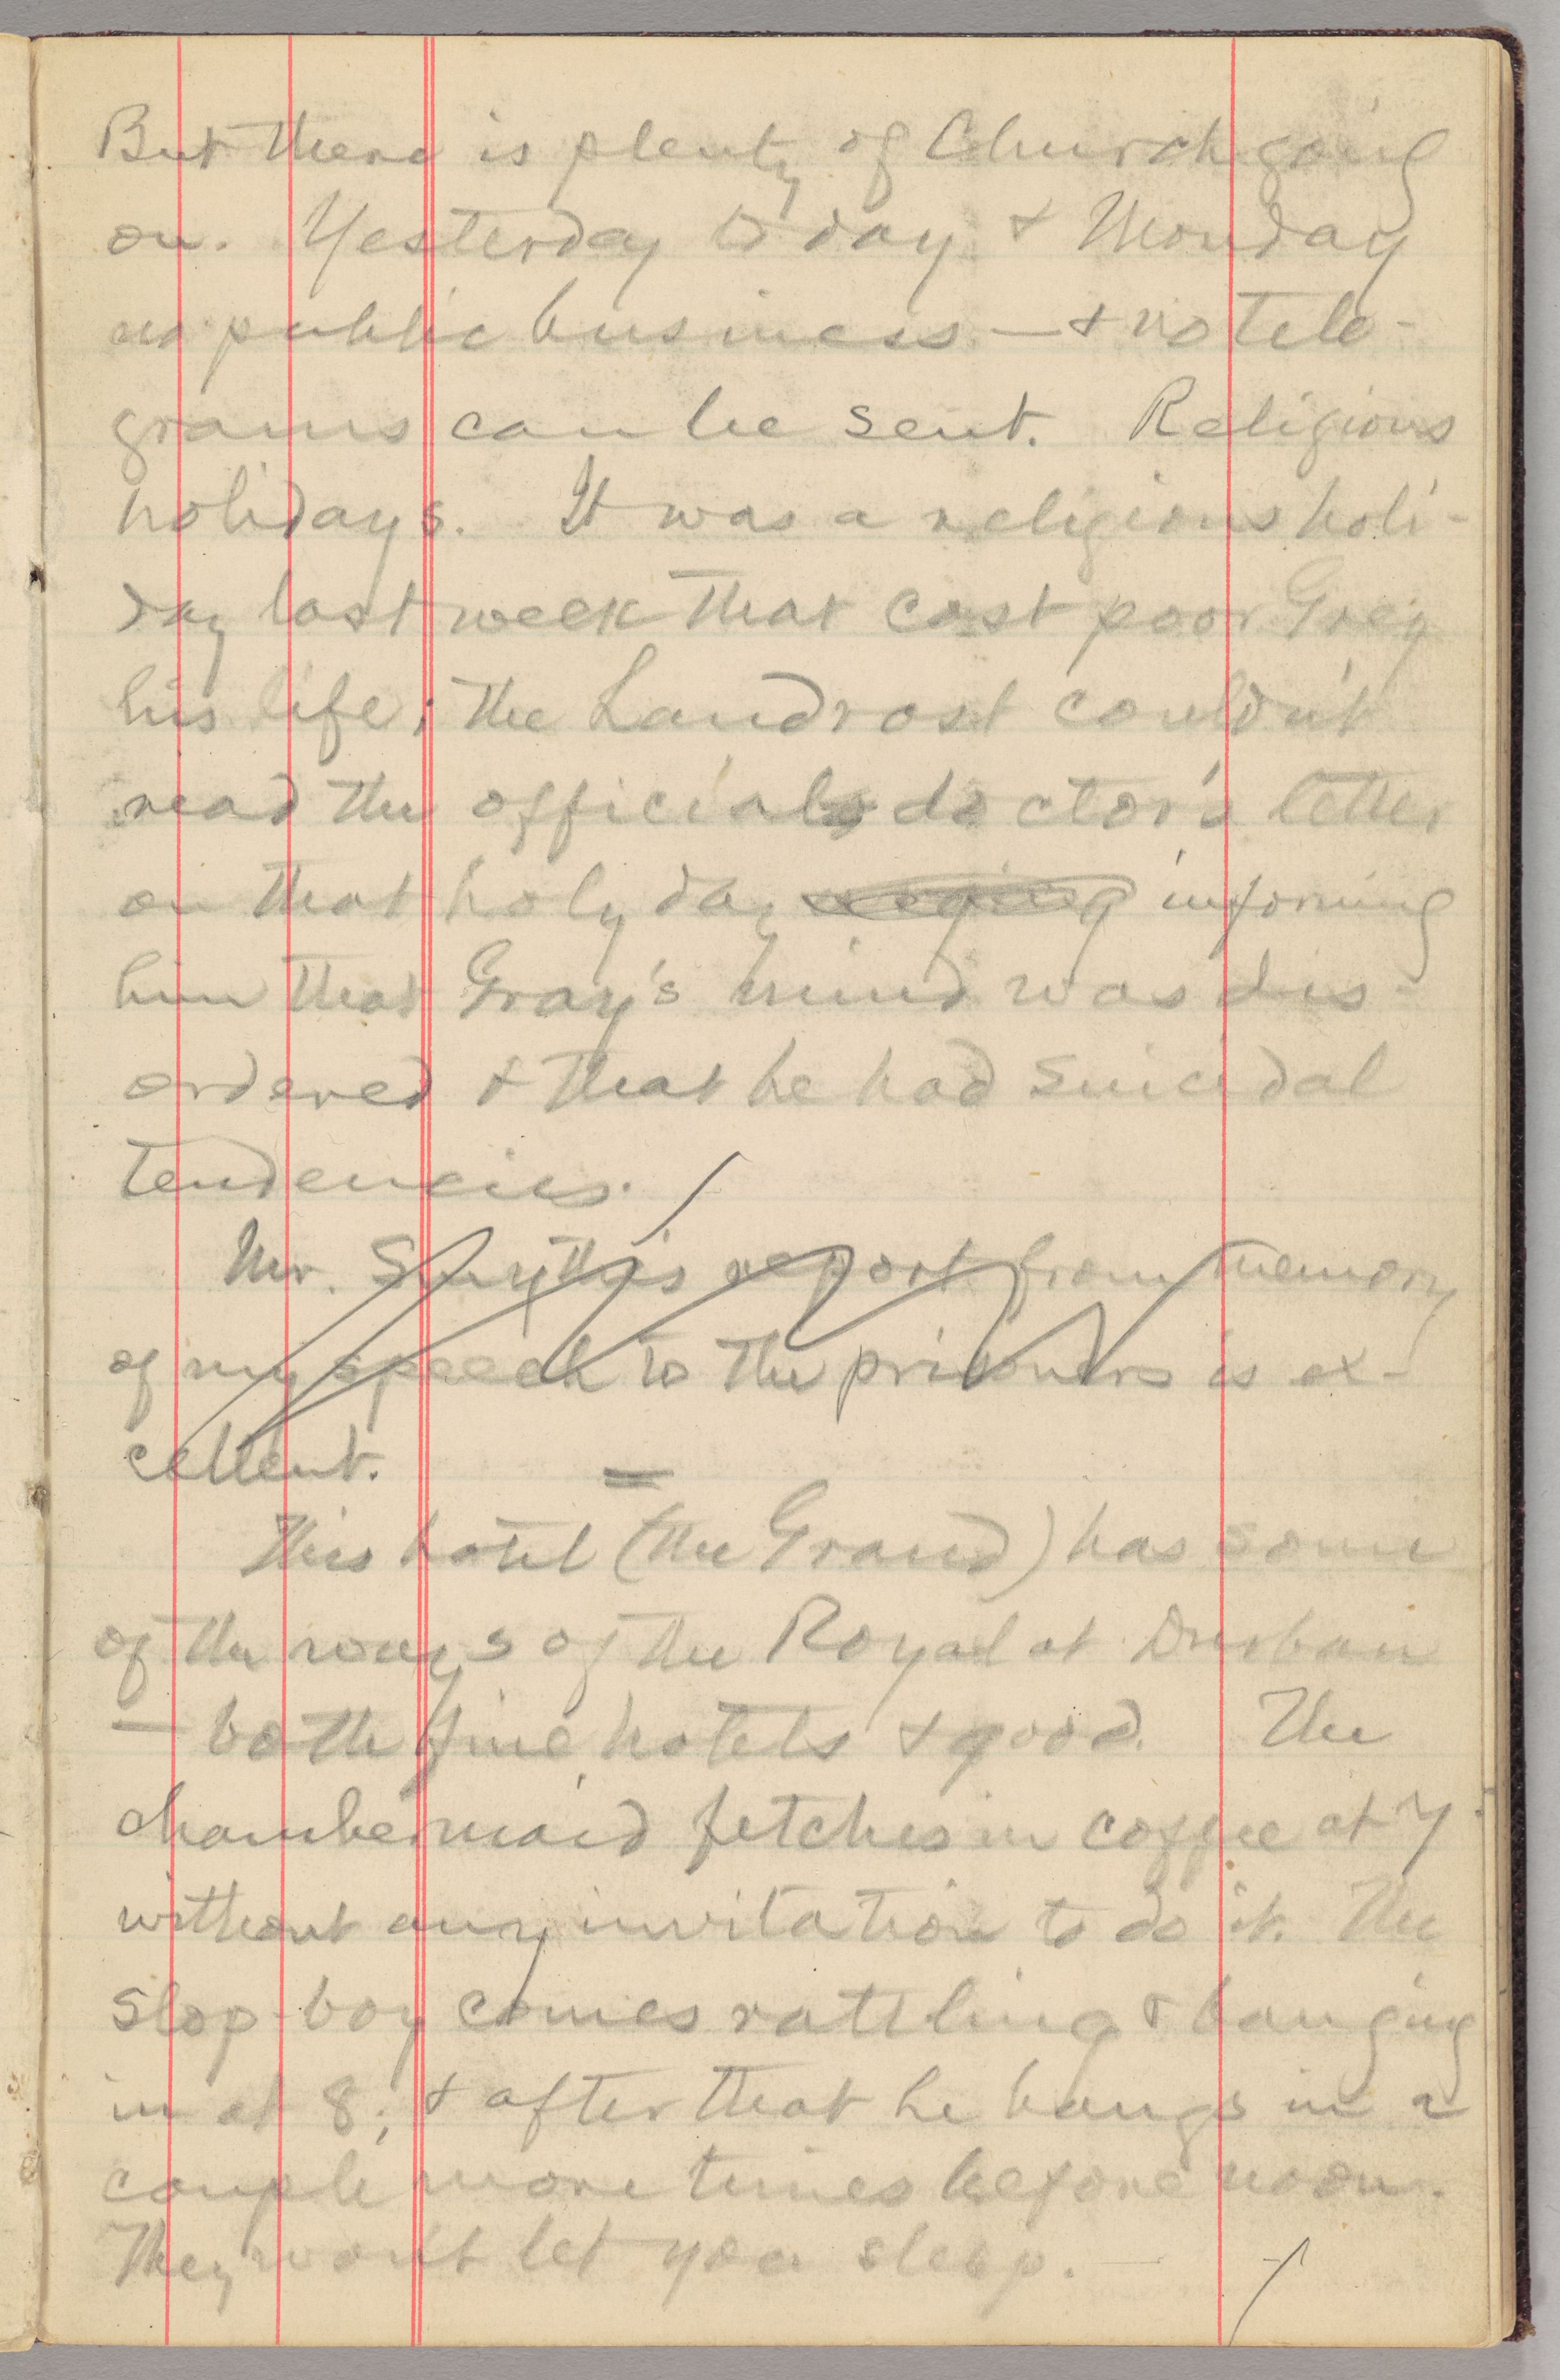 But there is plenty of Church going
on. Yesterday to day & Monday
no public business — & no tele-
grams can be sent. Religious
holidays. It was a religious holi-
day last week that cost poor Grey
his life; the Landrost couldn't
read the official doctor's letter
on that holy day informing
him that Gray's mind was dis-
ordered & that he had suicidal
tendencies.
Mr. Smythe's report from memory
of my speech to the prisoners is ex-
cellent.
This hotel (the Grand) has some
of the ways of the Royal at Durban
— both fine hotels & good. The
chambermaid fetches in coffee at 7
without any invitation to do it. The
slop-boy comes rattling & banging
in at 8; & after that he bangs in a
couple more times before noon.
They won't let you sleep.